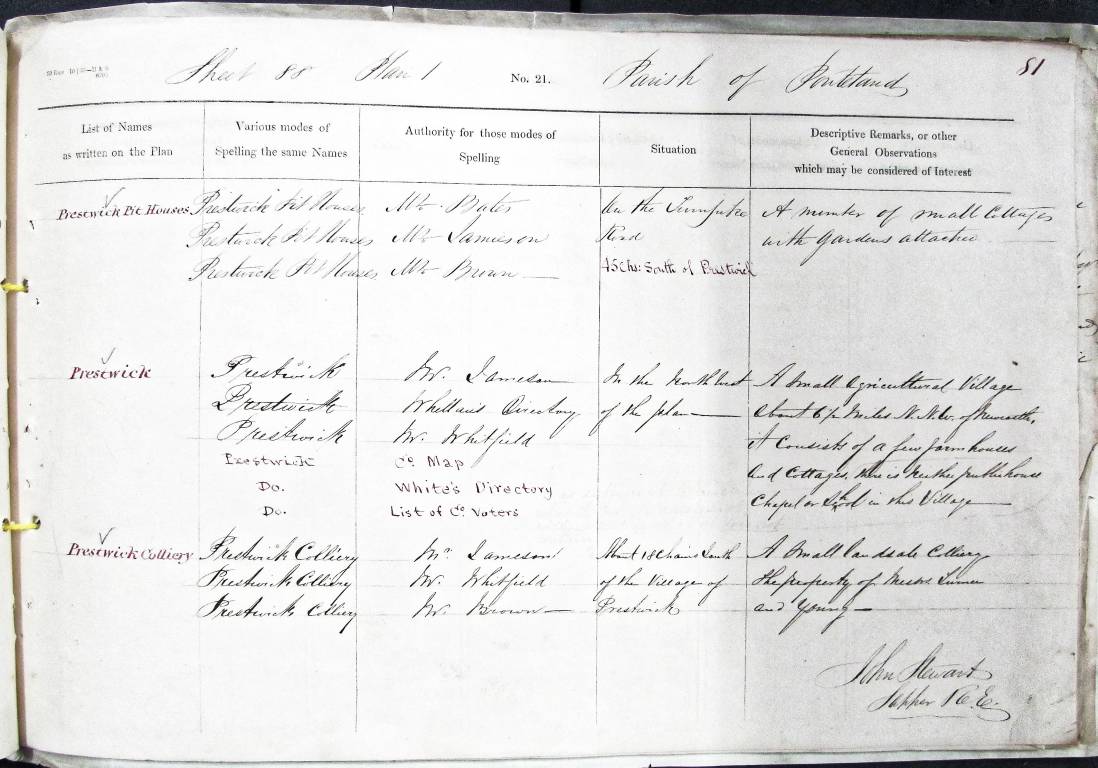 Sheet 88 Plan 1 No. 21. Parish of Ponteland 81
List of Names as written on the Plan
Various modes of Spelling the same Names
Authority for those modes of Spelling
Situation
Descriptive Remarks, or other General Observations which may be considered of Interest
Prestwick Pit Houses Prestwick Pit Houses Mr. Bates On the Turnpike A number of small Cottages
Prestwick Pit Houses Mr. Jamieson Road with gardens attached
Prestwick Pit Houses Mr. Brown 45 Chs: South of Prestwick
Prestwick Prestwick Mr. Jameson In the North West A Small Agricultural Village
Prestwick Whellan's Directory of the plan about 6½ Miles N.N.W. of Newcastle,
Prestwick Mr. Whitfield it Consists of a few farm houses
Prestwick Co. Map and Cottages. there is neither public house
Do. White's Directory Chapel or School in this Village
Do. List of Co. Voters
Prestwick Colliery Prestwick Colliery Mr. Jameson About 18 Chains South A Small landsale Colliery
Prestwick Colliery Mr. Whitfield of the Village of the property of Messrs
Prestwick Colliery Mr. Brown Prestwick and Young
John Stewart
Sapper R.E.